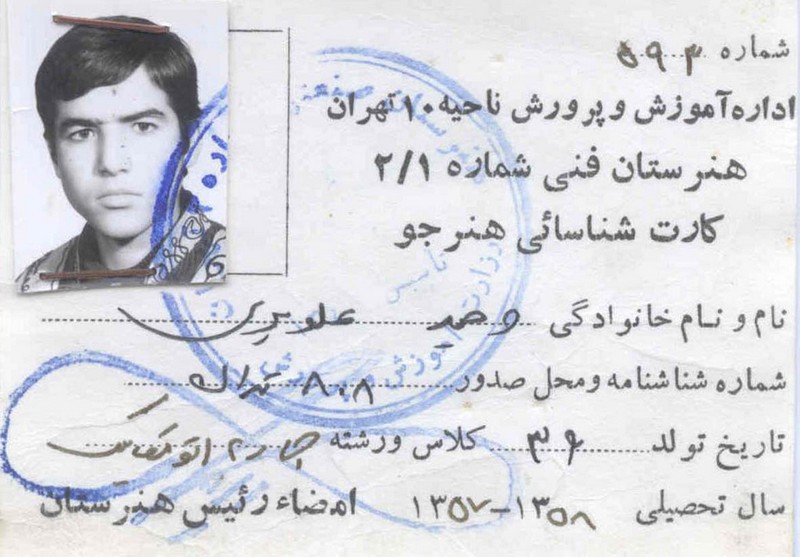 شماره ۵۹۳
اداره آموزش و پرورش ناحیه ۱۰ تهران
هنرستان فنی شماره ۲/۱
کارت شناسائی هنرجو
نام و نام خانوادگی وحید علوی
شماره شناسنامه و محل صدور ۸۰۸ تهران
تاریخ تولد ۳۶ کلاس ورشته چهارم اتومکانیک
سال تحصیلی ۱۳۵۸-۱۳۵۷ امضاء رئیس هنرستان
وزارت آموزش و پرورش